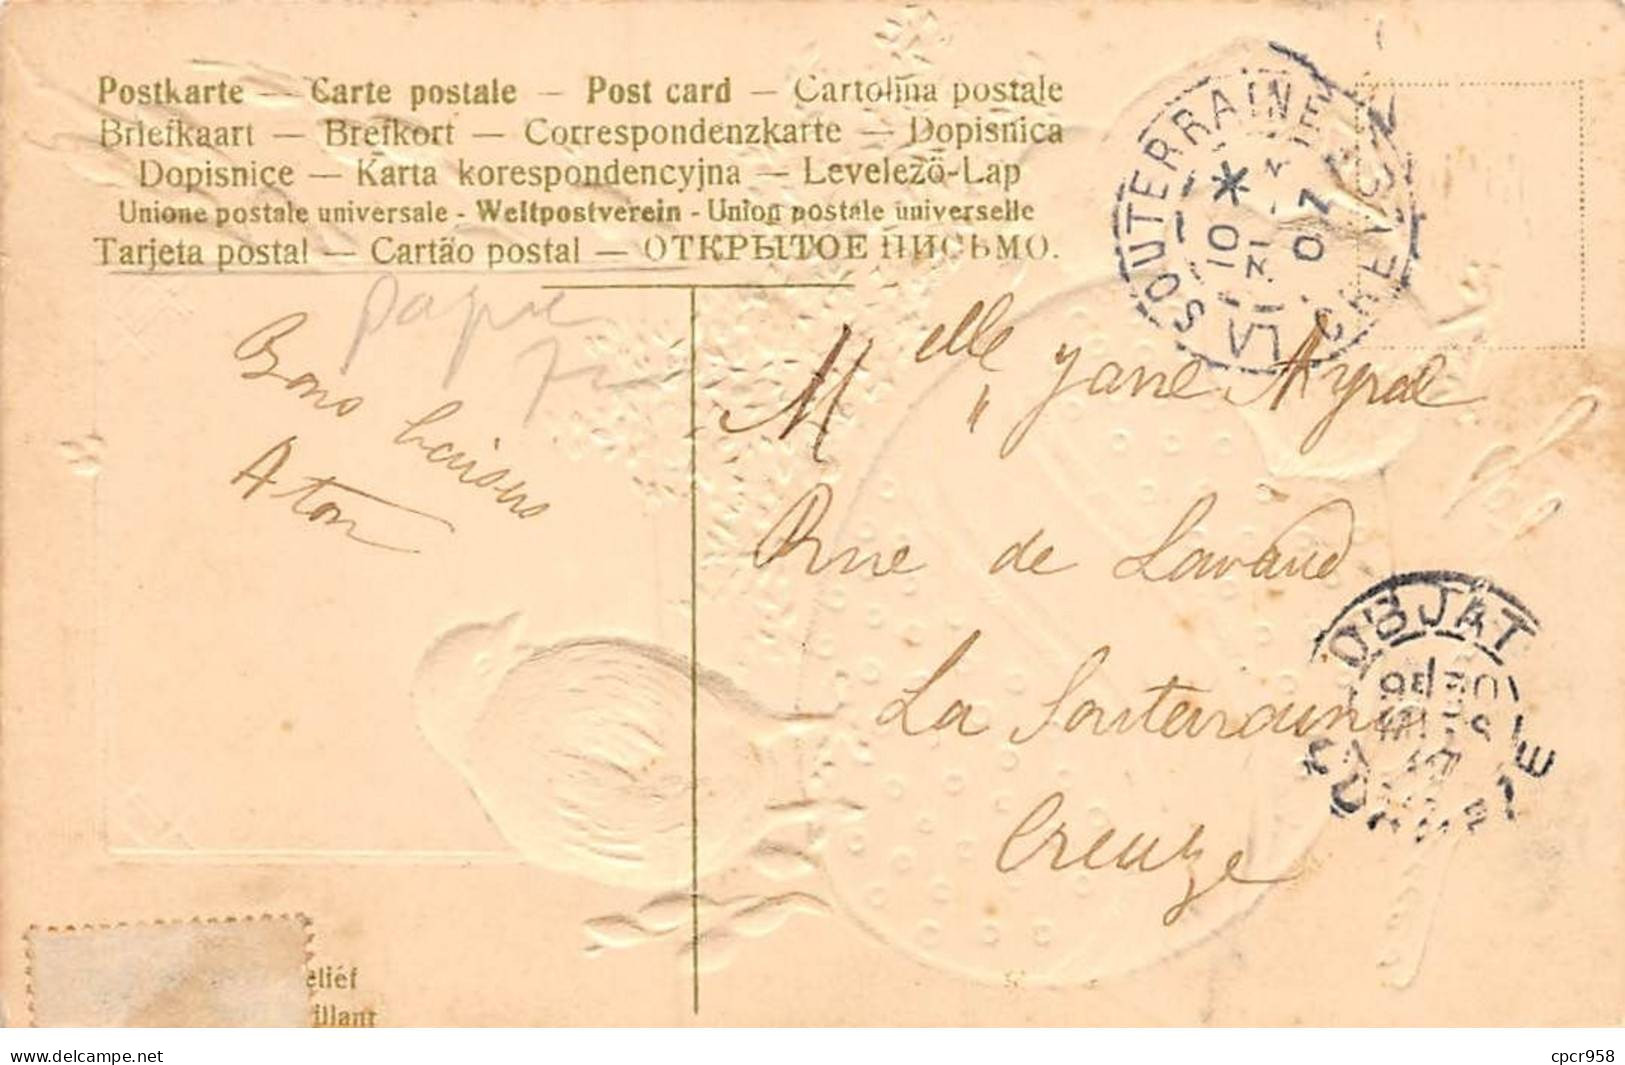 Postkarte — Carte postale — Post card — Cartolina postale
Briefkaart — Brefkort — Correspondenzkarte — Dopisnica
Dopisnice — Karta korespondencyjna — Levelező-Lap
Unione postale universale - Weltpostverein - Union postale universelle
Tarjeta postal — Cartão postal — ОТКРЫТОЕ ПИСЬМО.
LA SOUTERRAINE CREUSE
10
07
Bons baisers
Melle Jane
Rue de Lavaud
La Souterraine
Creuze
OBJAT
CORREZE
eliéf
illant
www.delcampe.net
cpcr958